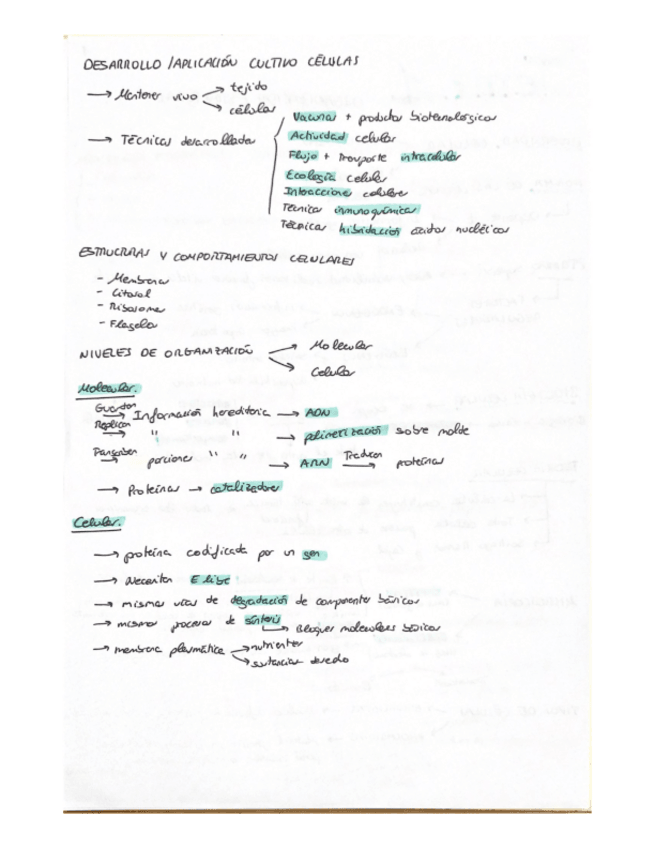 DESARROLLO / APLICACIÓN CULTIVO CÉLULAS
→ Mantener vivo → tejido
→ células
→ Técnicas desarrolladas
Vacunas + productos biotecnológicos
Actividad celular
Flujo + transporte intracelular
Ecología celular
Interacciones celulares
Técnicas inmunoquímica
Técnicas hibridación ácidos nucléicos
ESTRUCTURAS Y COMPORTAMIENTOS CELULARES
- Membrana
- Citosol
- Ribosoma
- Flagelo
NIVELES DE ORGANIZACIÓN → Molecular
→ Celular
Molecular.
Guardan → Información hereditaria → ADN
Replican → " " → polimerización sobre molde
→ porciones " " → ARN Traducen → proteínas
→ Proteínas → catalizadores
Celular.
→ proteína codificada por un gen
→ Necesitan E libre
→ mismas vías de degradación de componentes básicos
→ mismos procesos de síntesis
→ Bloques moleculares básicos
→ membrana plasmática → nutrientes
→ sustancias desecho